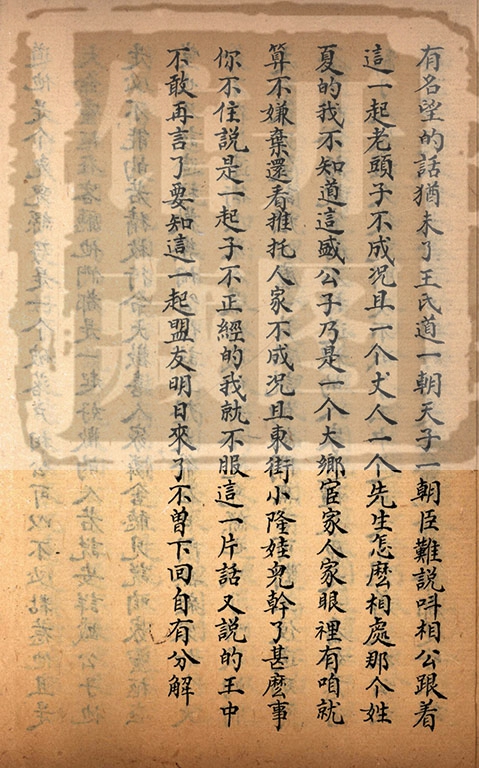 有名望的話猶未了王氏道一朝天子一朝臣難說呌相公跟着
這一起老頭子不成况且一个丈人一个先生怎麽相處那个姓
夏的我不知道這盛公子乃是一个大鄉宦家人家眼裡有咱就
算不嫌棄還看推托人家不成况且東街小隆娃兒幹了甚麽事
你不住説是一起子不正經的我就不服這一片話又説的王中
不敢再言了要知這一起盟友明日來了不曽下回自有分解